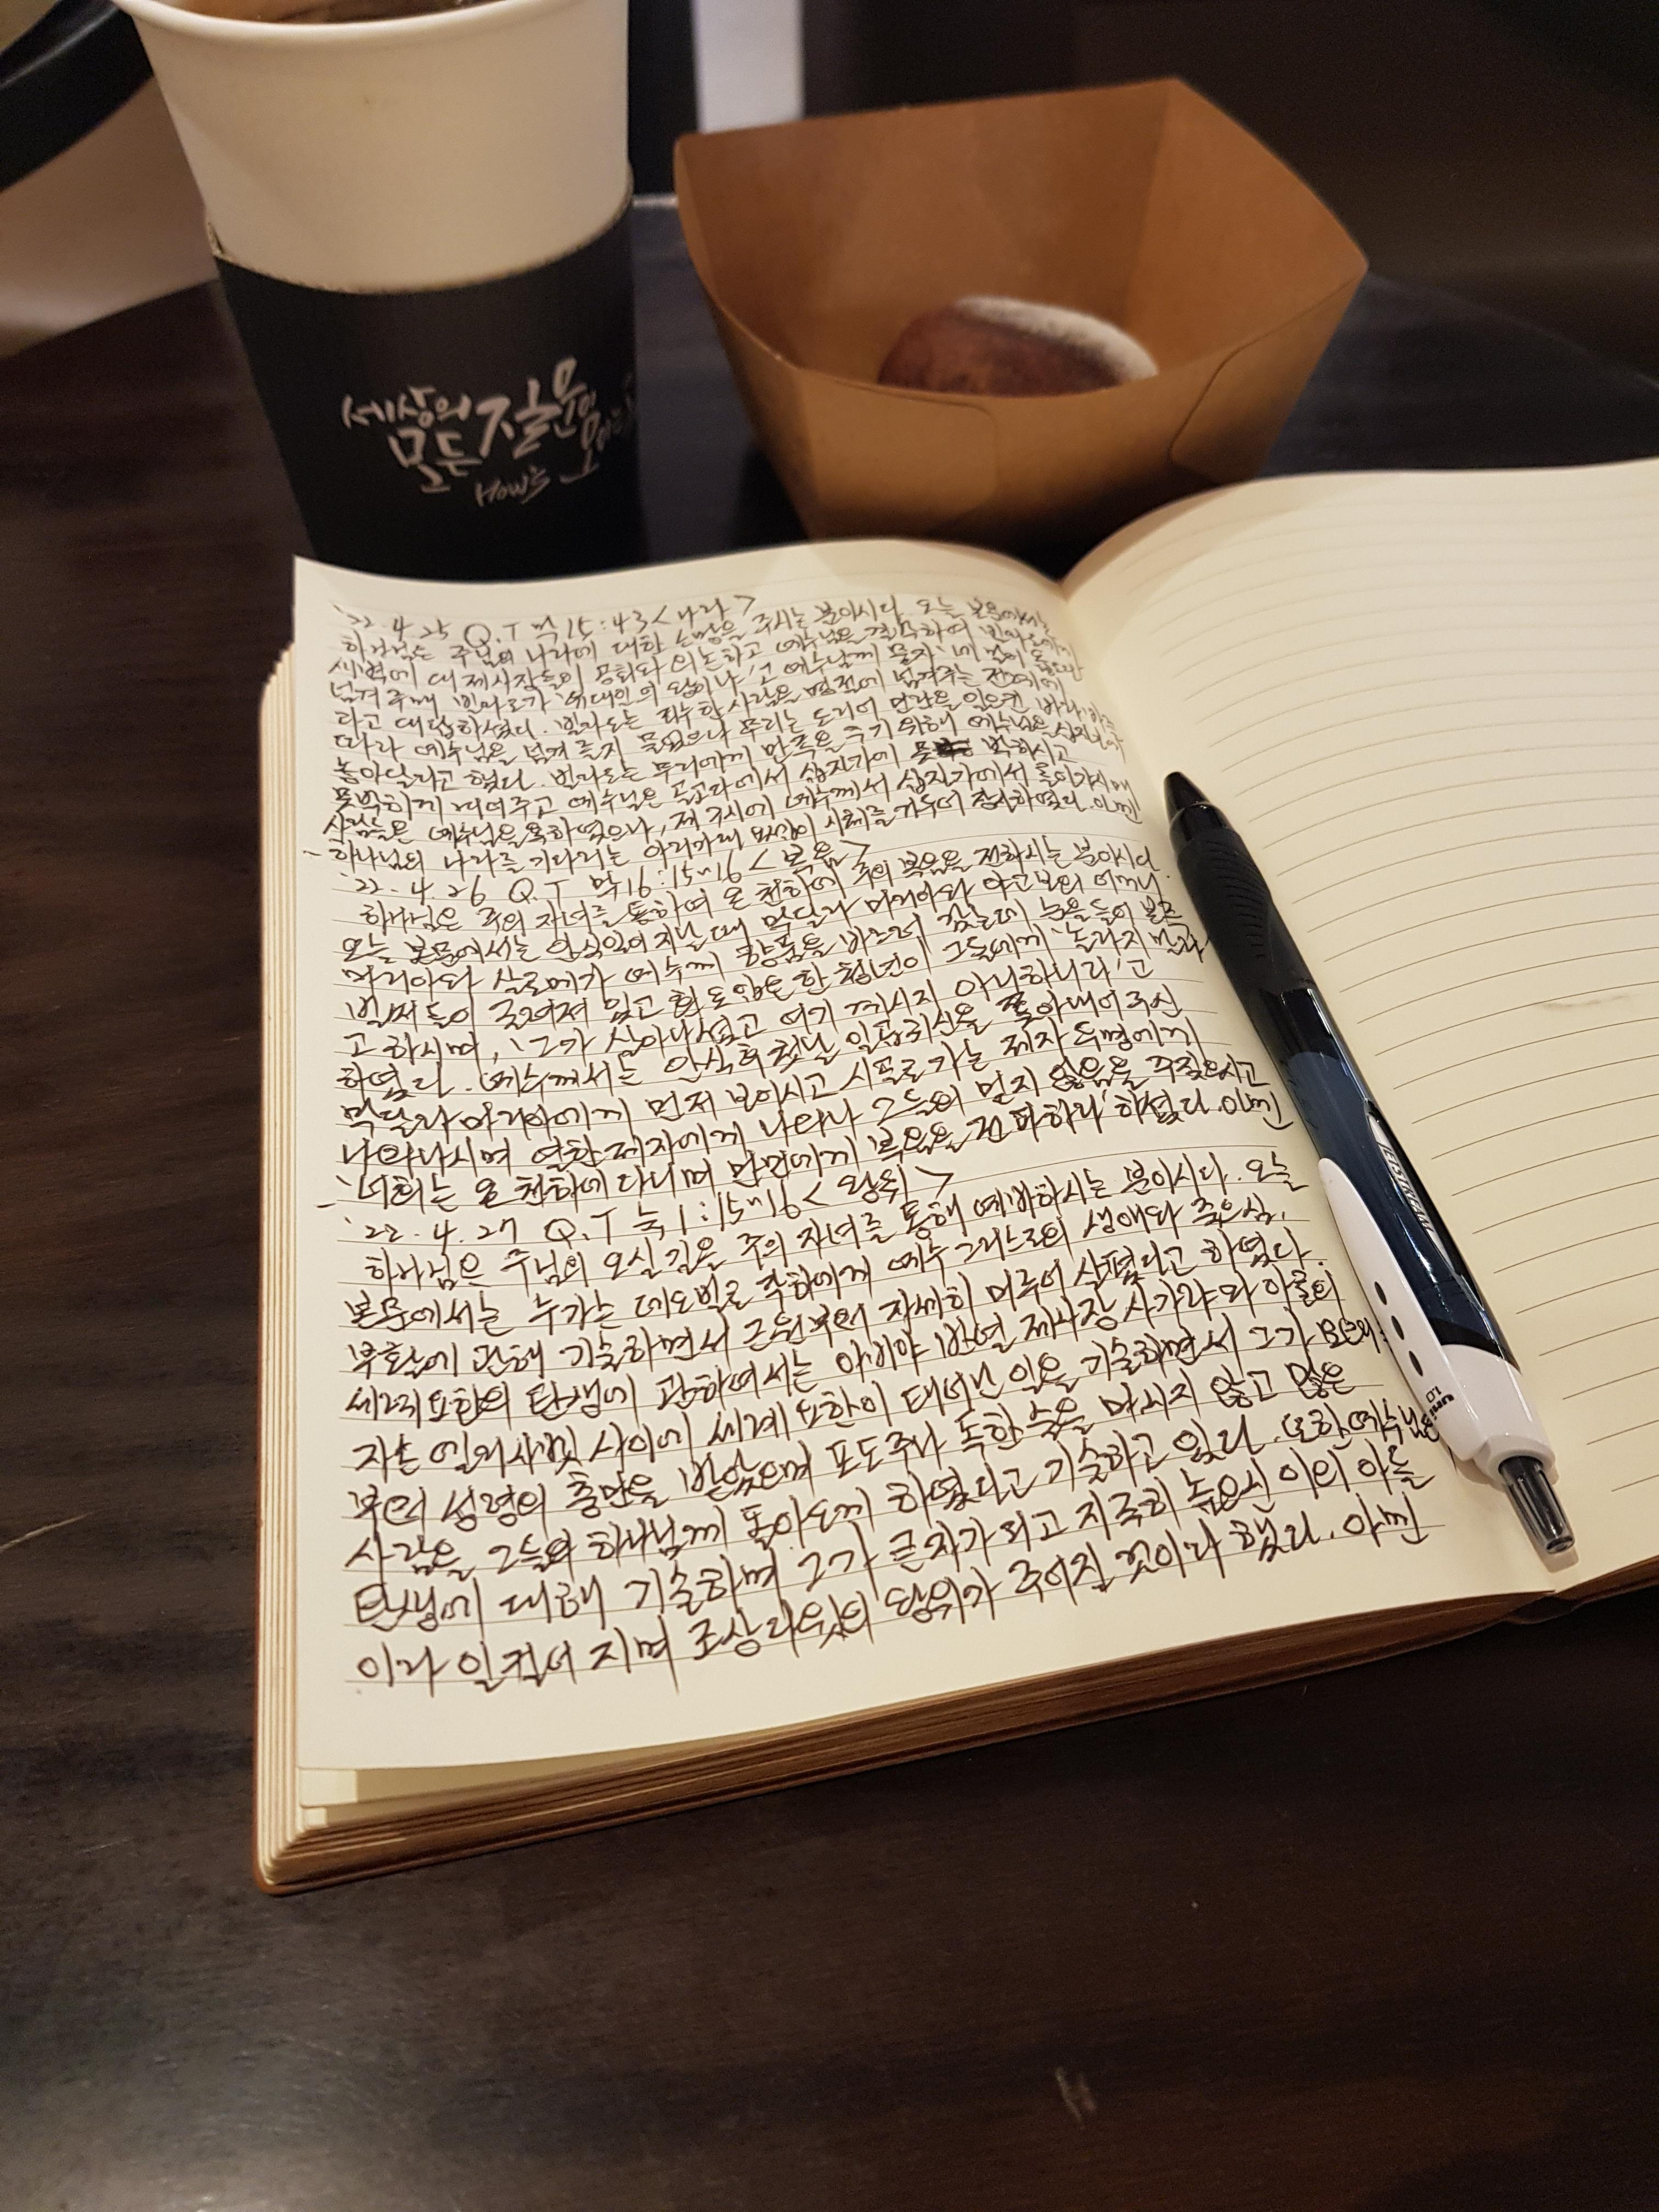 세상의
모든 질문이
How's
'22.4.25 Q.T 막15:43 <나라>
하나님은 주님의 나라에 대한 소망을 주시는 분이시다. 오늘 본문에서는
새벽에 대제사장들이 공회와 의논하고 예수님을 결박하여 빌라도에게
넘겨주매 빌라도가 '유대인의 왕이냐'고 예수님께 묻자 '네 말이 옳도다'
라고 대답하셨다. 빌라도는 죄수 한 사람을 명절에 넘겨주는 전례에
따라 예수님을 넘겨줄지 물었으나 무리는 도리어 민란을 일으킨 바라바를
놓아달라고 했다. 빌라도는 무리에게 만족을 주기 위해 예수님을 십자가에
못박히게 내어주고 예수님은 골고다에서 십자가에 박히시고
사람들은 예수님을 욕하였으나, 제 9시에 예수께서 십자가에서 돌아가시매
- 하나님의 나라를 기다리는 아리마대 요셉이 시체를 거두어 장사하였다. 아멘
'22.4.26 Q.T 막16:15~16 <복음>
하나님은 주의 자녀를 통하여 온 천하에 주의 복음을 전하시는 분이시다.
오늘 본문에서는 안식일이 지날 때 막달라 마리아와 야고보의 어머니
마리아와 살로메가 예수께 향품을 바르러 갔는데 눈을 들어 본즉
벌써 돌이 굴려져 있고 흰 옷 입은 한 청년이 그들에게 '놀라지 말라'
고 하시며, '그가 살아나셨고 여기 계시지 아니하니라'고
하였다. 예수께서는 안식 후 첫날 일곱 귀신을 쫓아내어 주신
막달라 마리아에게 먼저 보이시고 시골로 가는 제자 두 명에게
나타나시며 열한 제자에게 나타나 그들의 믿지 않음을 꾸짖으시고
- '너희는 온 천하에 다니며 만민에게 복음을 전파하라' 하셨다. 아멘
'22.4.27 Q.T 눅1:15~16 <왕위>
하나님은 주님의 오실 길을 주의 자녀를 통해 예비하시는 분이시다. 오늘
본문에서는 누가는 데오빌로 각하에게 예수 그리스도의 생애와 죽으심,
부활에 관해 기술하면서 근원부터 자세히 미루어 살폈다고 하였다.
세례 요한의 탄생에 관하여서는 아비야 반열 제사장 사가랴와 아론의
자손 엘리사벳 사이에 세례 요한이 태어난 일을 기술하면서 그가 모태로
부터 성령의 충만을 받았으며 포도주나 독한 술을 마시지 않고 많은
사람을 그들의 하나님께 돌아오게 하였다고 기술하고 있다. 또한 예수님의
탄생에 대해 기술하며 그가 큰 자가 되고 지극히 높으신 이의 아들
이라 일컬어지며 조상 다윗의 왕위가 주어질 것이라 했다. 아멘
JETSTREAM
uni